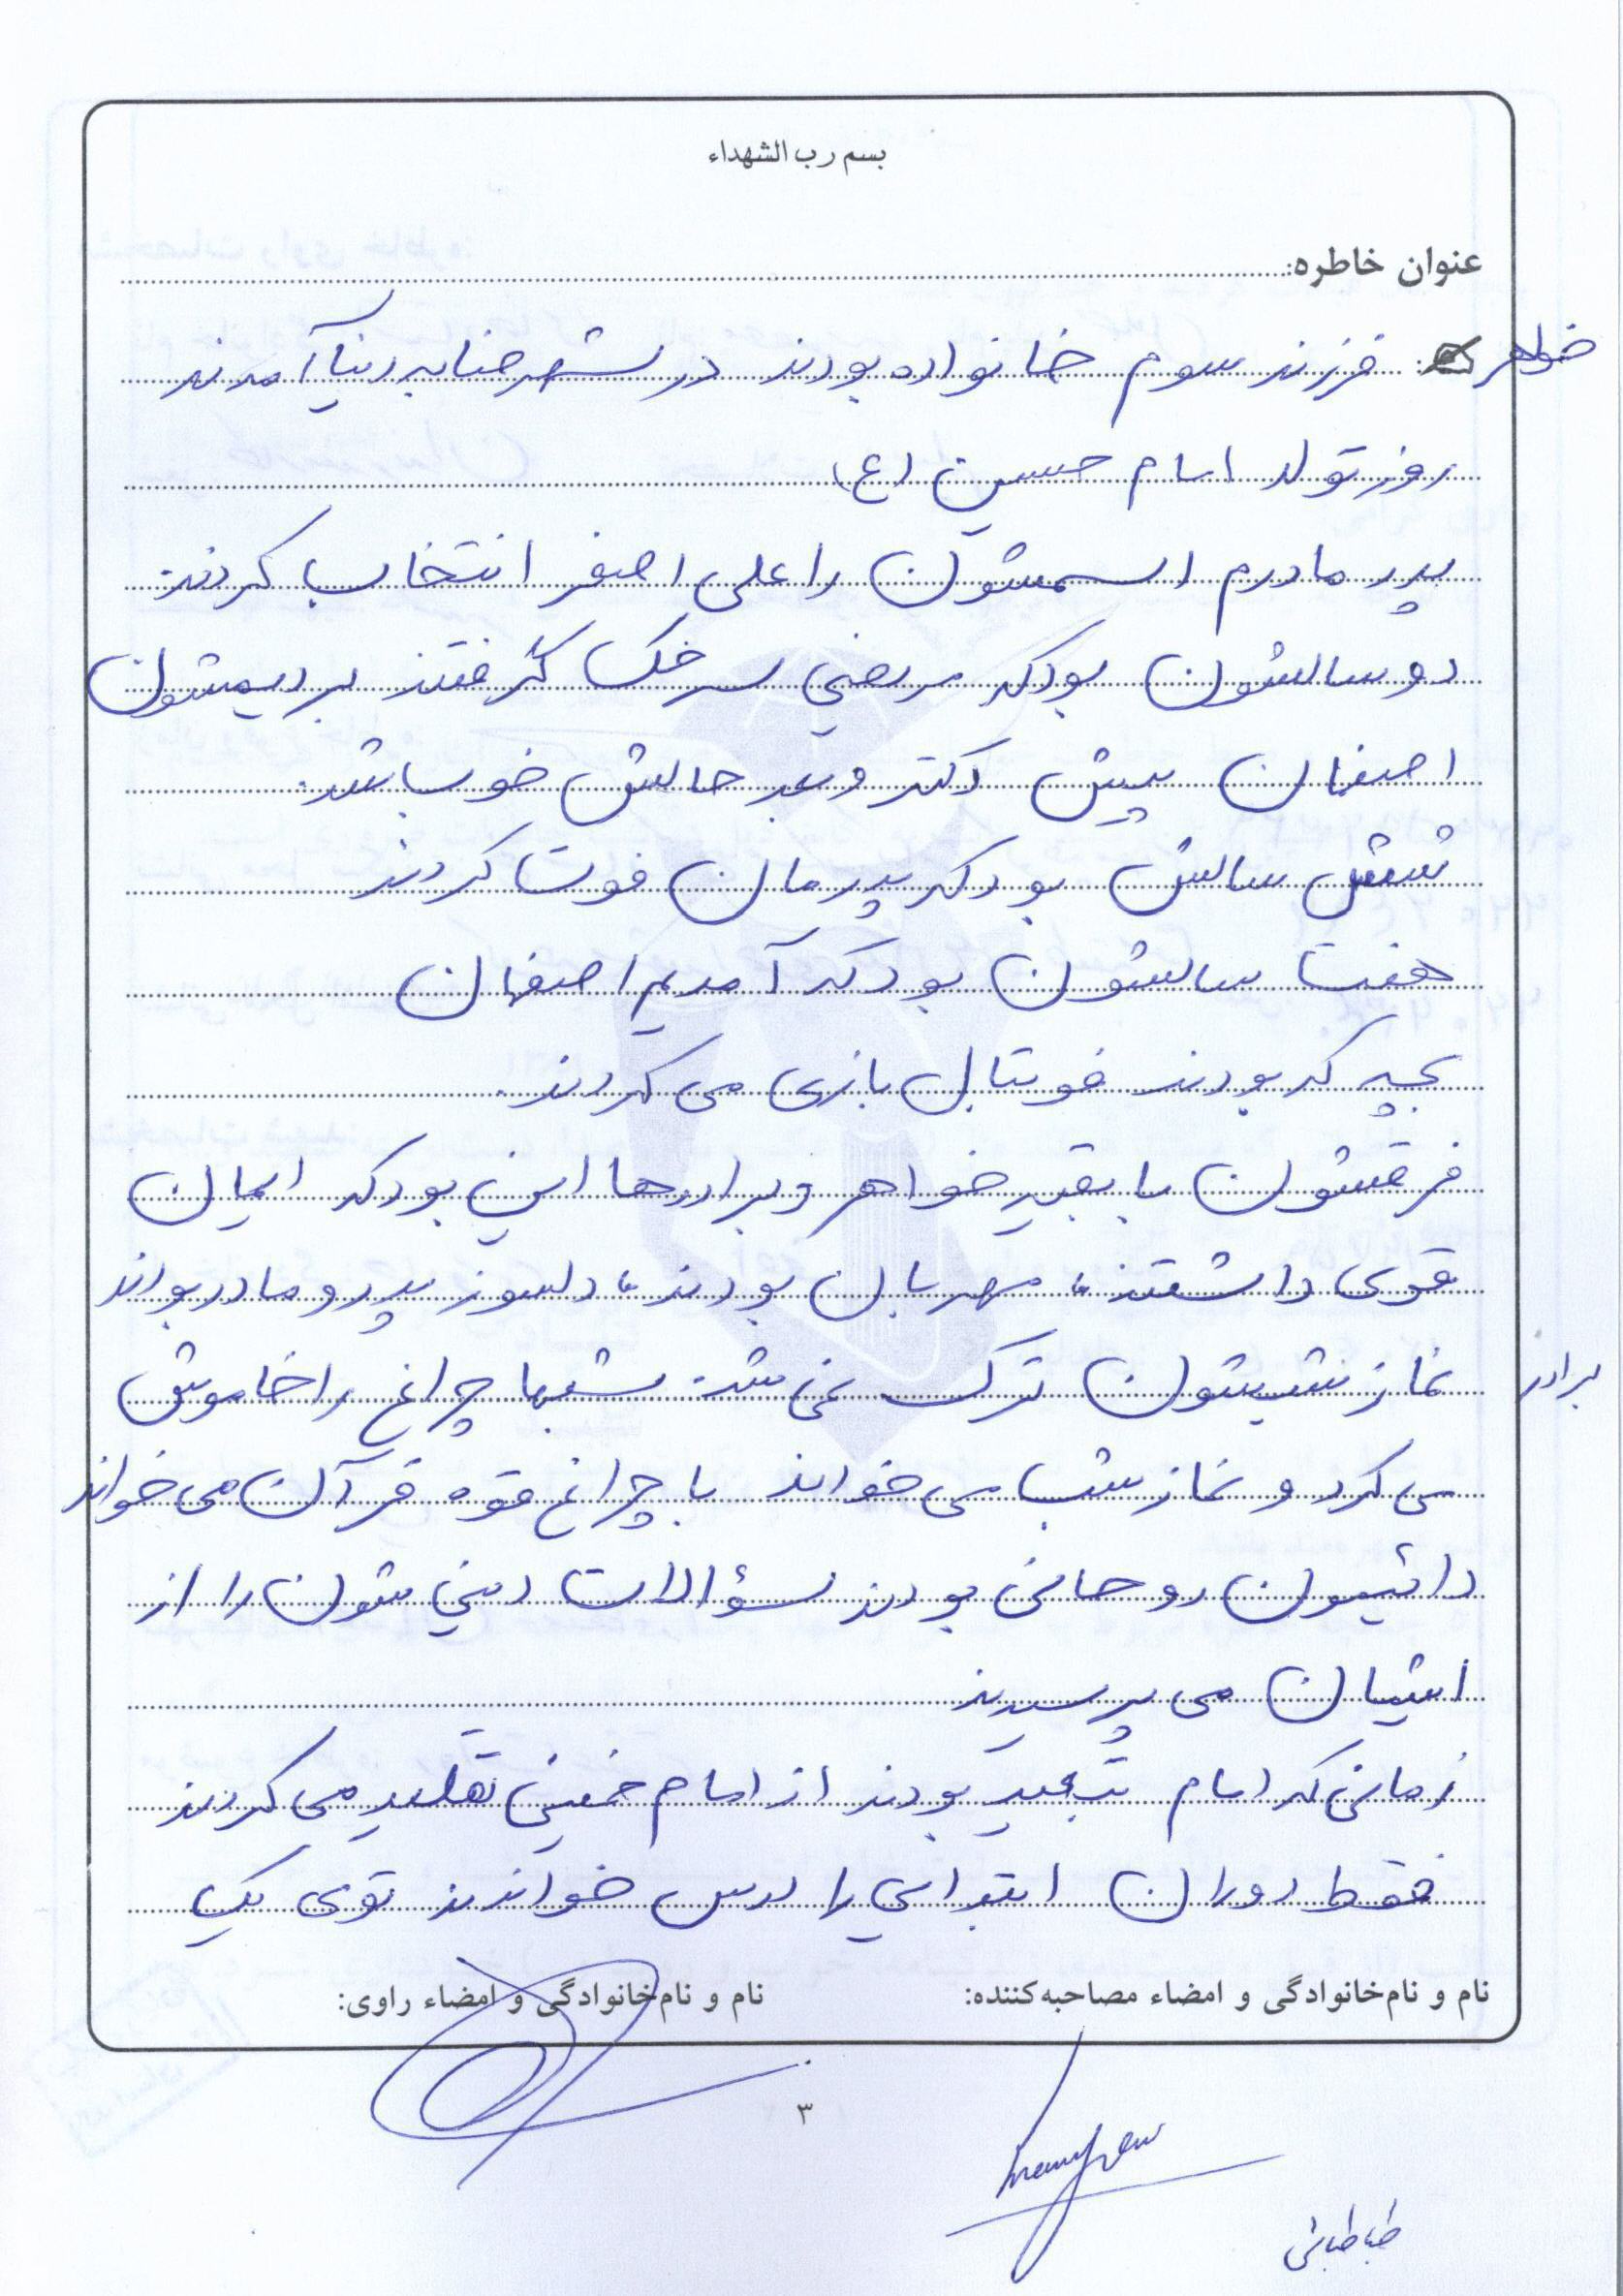 بسم رب الشهداء
عنوان خاطره:
خواهر: فرزند سوم خانواده بودند در شهر ضنابه دنیا آمدند
روز تولد امام حسین (ع)
پدر مادرم اسمشون را علی اصغر انتخاب کردند.
دو سالشون بود که مریضی سرخک گرفتند بردیمشون
اصفهان پیش دکتر و بعد حالش خوب شد.
شش سالش بود که پدرمان فوت کردند
هفت سالشون بود که آمدیم اصفهان
بچه که بودند فوتبال بازی می کردند.
فرقشون با بقیه خواهر و برادرها این بود که ایمان
قوی داشتند، مهربان بودند، دلسوز پدر و مادر بودند
برادر نماز شبشون ترک نمی شد. شبها چراغ را خاموش
می کرد و نماز شب می خواند با چراغ قوه قرآن می خواند
دائیمون روحانی بودند سؤالات دینی شون را از
ایشان می پرسیدند
زمانی که امام تبعید بودند از امام خمینی تقلید می کردند
فقط دوران ابتدایی را درس خواندند توی یک
نام و نام‌خانوادگی و امضاء مصاحبه‌کننده:
نام و نام‌خانوادگی و امضاء راوی:
۳
طباطبائی